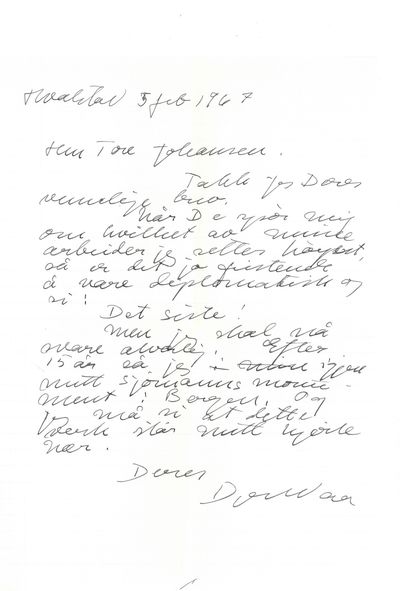 Hvalstad 5 feb 1967
Herr Tore Johansen.
Takk for Deres
vennlige brev.
Når De spør mig
om hvilket av mine
arbeider jeg setter høyest,
så er det jo fristende
å være diplomatisk og
si!
Det siste!
Men jeg skal nå
være alvorlig. Efter
15 år så jeg igjen
mitt sjømanns monu-
ment i Bergen. Og
jeg må si at dette
verk står mitt hjerte
nær.
Deres
Dyre Vaa